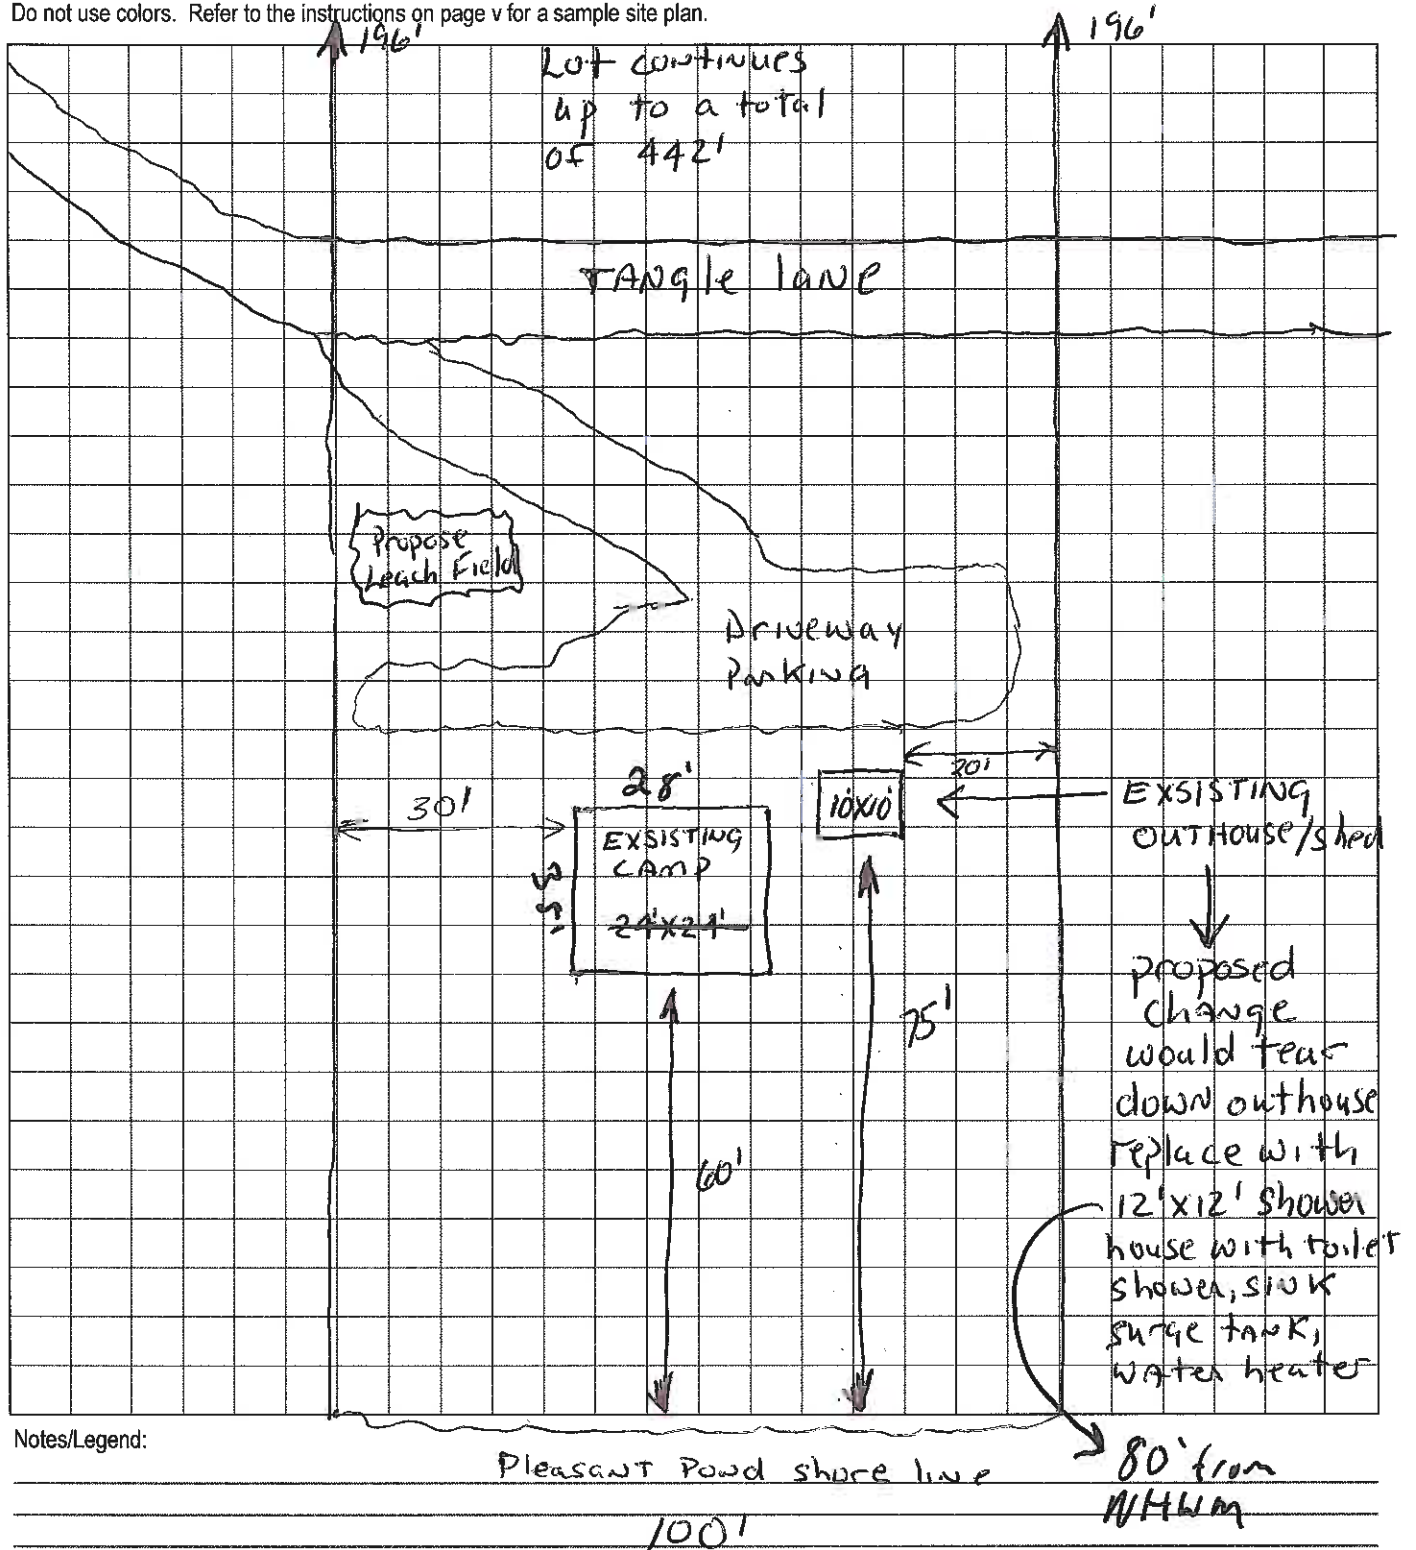 Do not use colors. Refer to the instructions on page v for a sample site plan.
196'
196'
Lot continues
up to a total
of 442'
TANgle lane
Propose
Leach Field
Driveway
Parking
20'
28'
30'
10x10
EXSISTING
OUTHOUSE/shed
EXSISTING
CAMP
24'x24'
75'
60'
proposed
change
would tear
down outhouse
replace with
12'x12' shower
house with toilet
shower, sink
surge tank,
water heater
Notes/Legend:
Pleasant Pond shore line
80' from
NHWM
100'